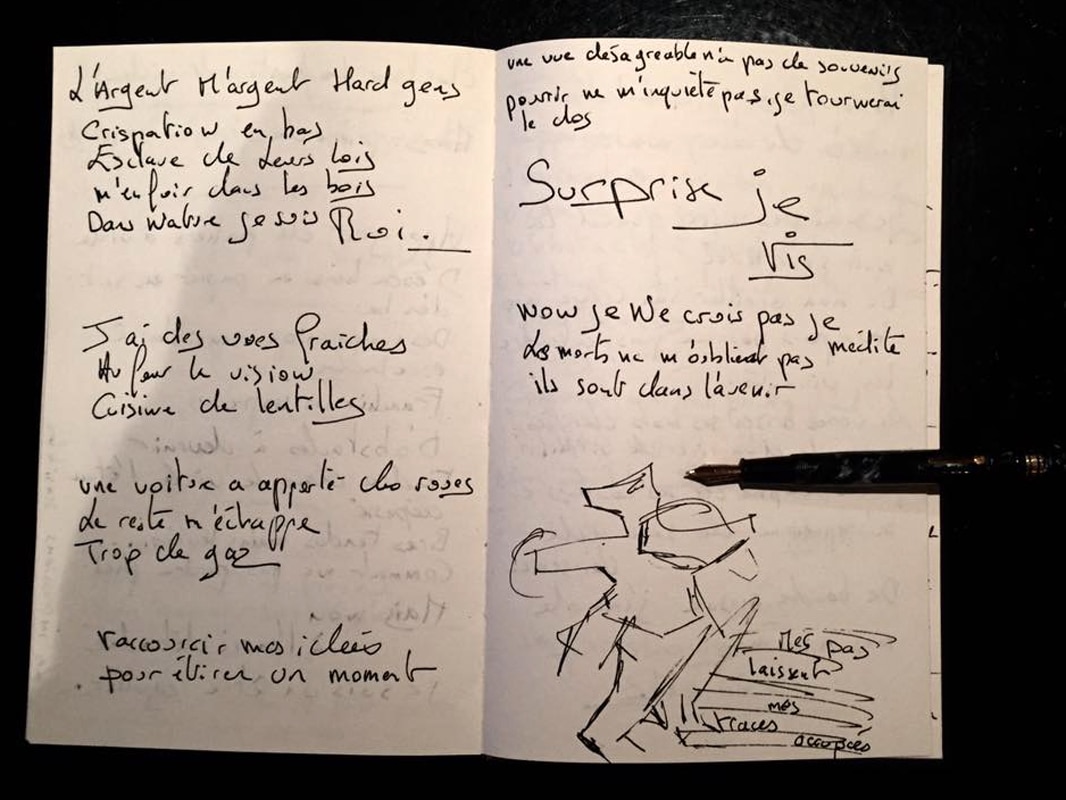 L'Argent M'argent Hard gens
Crispation en bas
Esclave de Leurs Lois
m'enfuir dans les bois
Dans Nature je suis Roi.
J'ai des vues fraîches
la vision
Cuisine de lentilles
une voiture a apporté des roses
Le reste m'échappe
Trop de gaz
raccourcir mes idées
pour étirer un moment
une vue désagréable n'a pas de souvenirs
pourrir ne m'inquiète pas, je tournerai
le dos
Surprise je
Vis
wow je Ne crois pas je
médite
Les morts ne m'oublient pas
ils sont dans l'avenir
Mes pas
laissent
mes
traces
occupées